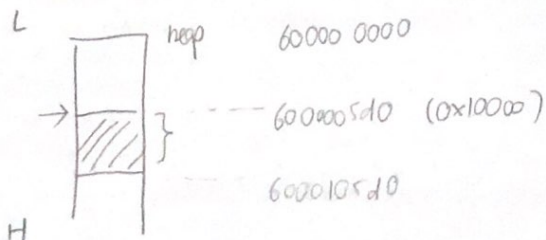 L
heap 60000 0000
→ 6000005d0 (0x10000)
6000105d0
H